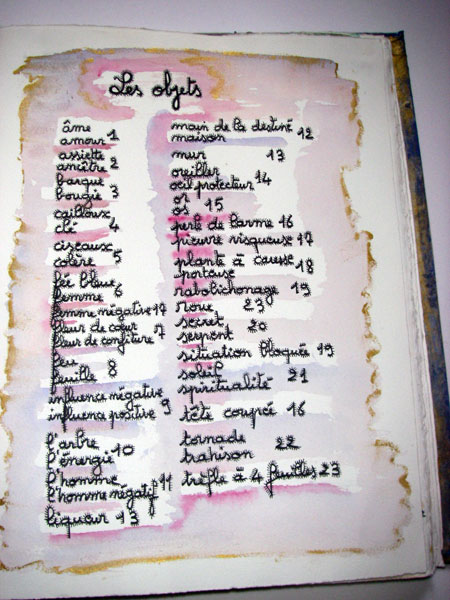 Les objets
âme
amour 1
assiette
ancêtre 2
barque
bougie 3
cailloux
clé 4
ciseaux
colère 5
fée bleue
femme 6
femme négative 17
fleur de cœur
fleur de confiture 7
feu
feuille 8
influence négative
influence positive 9
l'arbre
l'énergie 10
l'homme
l'homme négatif 11
liqueur 13
main de la destiné
maison 12
mur 13
oreiller
oeil protecteur 14
or
os 15
perle de larme 16
pieuvre visqueuse 17
plante à caresse
porteuse 18
rabobichonage 19
roue 23
secret
serpent 20
situation bloquée 19
soleil
spiritualité 21
tête coupée 16
tornade
trahison 22
trèfle à 4 feuilles 23